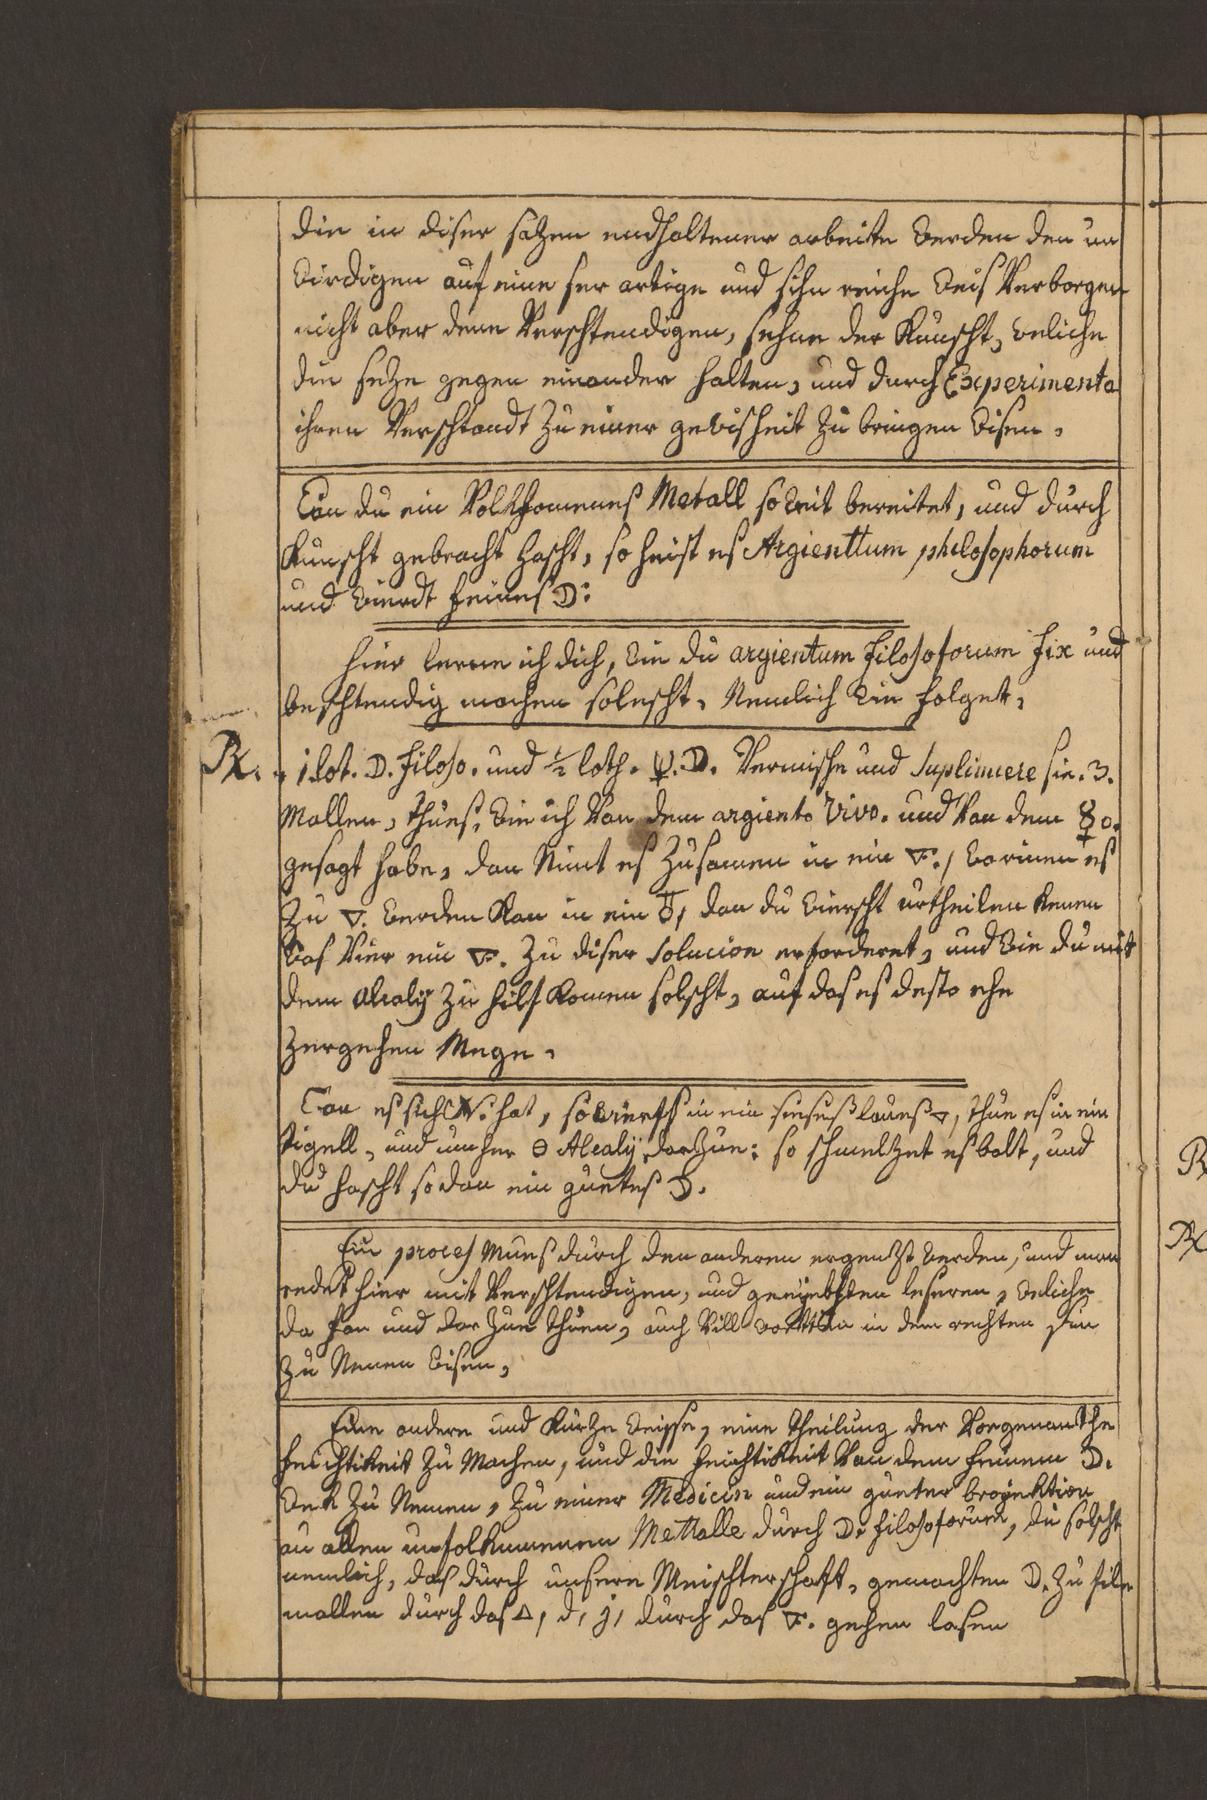 die in diser sazen endhaltener arbeite werden den un
wirdigen auf eine ser artige und sihn reiche weis Verborgen
nicht aber dene Verschtendigen, sehne der Kunscht, weliche
die seze gegen einander halten, und durch Experimenta
ihren Verschtandt zu einer gewisheit zu bringen wisen.
Wan du ein Volkhomenes Metall so weit bereitet, und durch
Kunscht gebracht hascht, so heist es Argienttum philosophorum
und wierdt feines ☽:
Hier lerne ich dich, wie du argientum filosoforum fix und
beschtendig machen solescht, Nemlich wie folget,
℞. 1 lot. ☽. filoso. und ½ loth. ☿. ☽. Vermische und Suplimiere sie. 3.
Mallen, thues, wie ich Von dem argiento vivo. und Von dem ☿ o.
gesagt habe, dan Nimt es zusamen in ein 🜅. / worinen es
zu 🜄. werden Kan in ein, dan du wierscht urtheilen Kenen
was Vier ein 🜅. zu diser Solucion erforderet, und wie du mit
dem alcalÿ zu hilf Komen solscht, auf das es desto ehe
zergehen Mege.
Wan es sich hat, so wierfs in ein sieses laues 🜄, thue es in ein
tigell, und umher 🜔 Alcalÿ darzue: so schmelzet es balt, und
du hascht sodan ein guetes ☽.
Ein proces Mues durch den anderen ergenzt werden, und man
redet hier mit Verschtendigen, und geeyebtten leseren, weliche
da fan und dar zue thuen, auch Vill in dem rechten sin
zu Nemen wisen,
Eine andere und Kurze weisse, eine theilung der Vorgenanthe
feichtikeit zu Machen, und die feichtikeit Von dem feinem ☽.
wek zu Nemen, zu einer Medicin und ein gueter broiektion
an allen unfolkhumenen Mettalle durch ☽. filosoforum, du solscht
nemlich, das durch unsere Meischterschaft, gemachten ☽. zu file
mallen durch das 🜂, d, j, durch das 🜅. gehen lasen